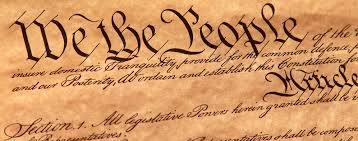 We the People of the
insure domestic Tranquility, provide for the common defence,
and our Posterity, do ordain and establish this Constitution for
Article
Section 1. All legislative Powers herein granted shall be
Representatives.
Representatives shall be compo